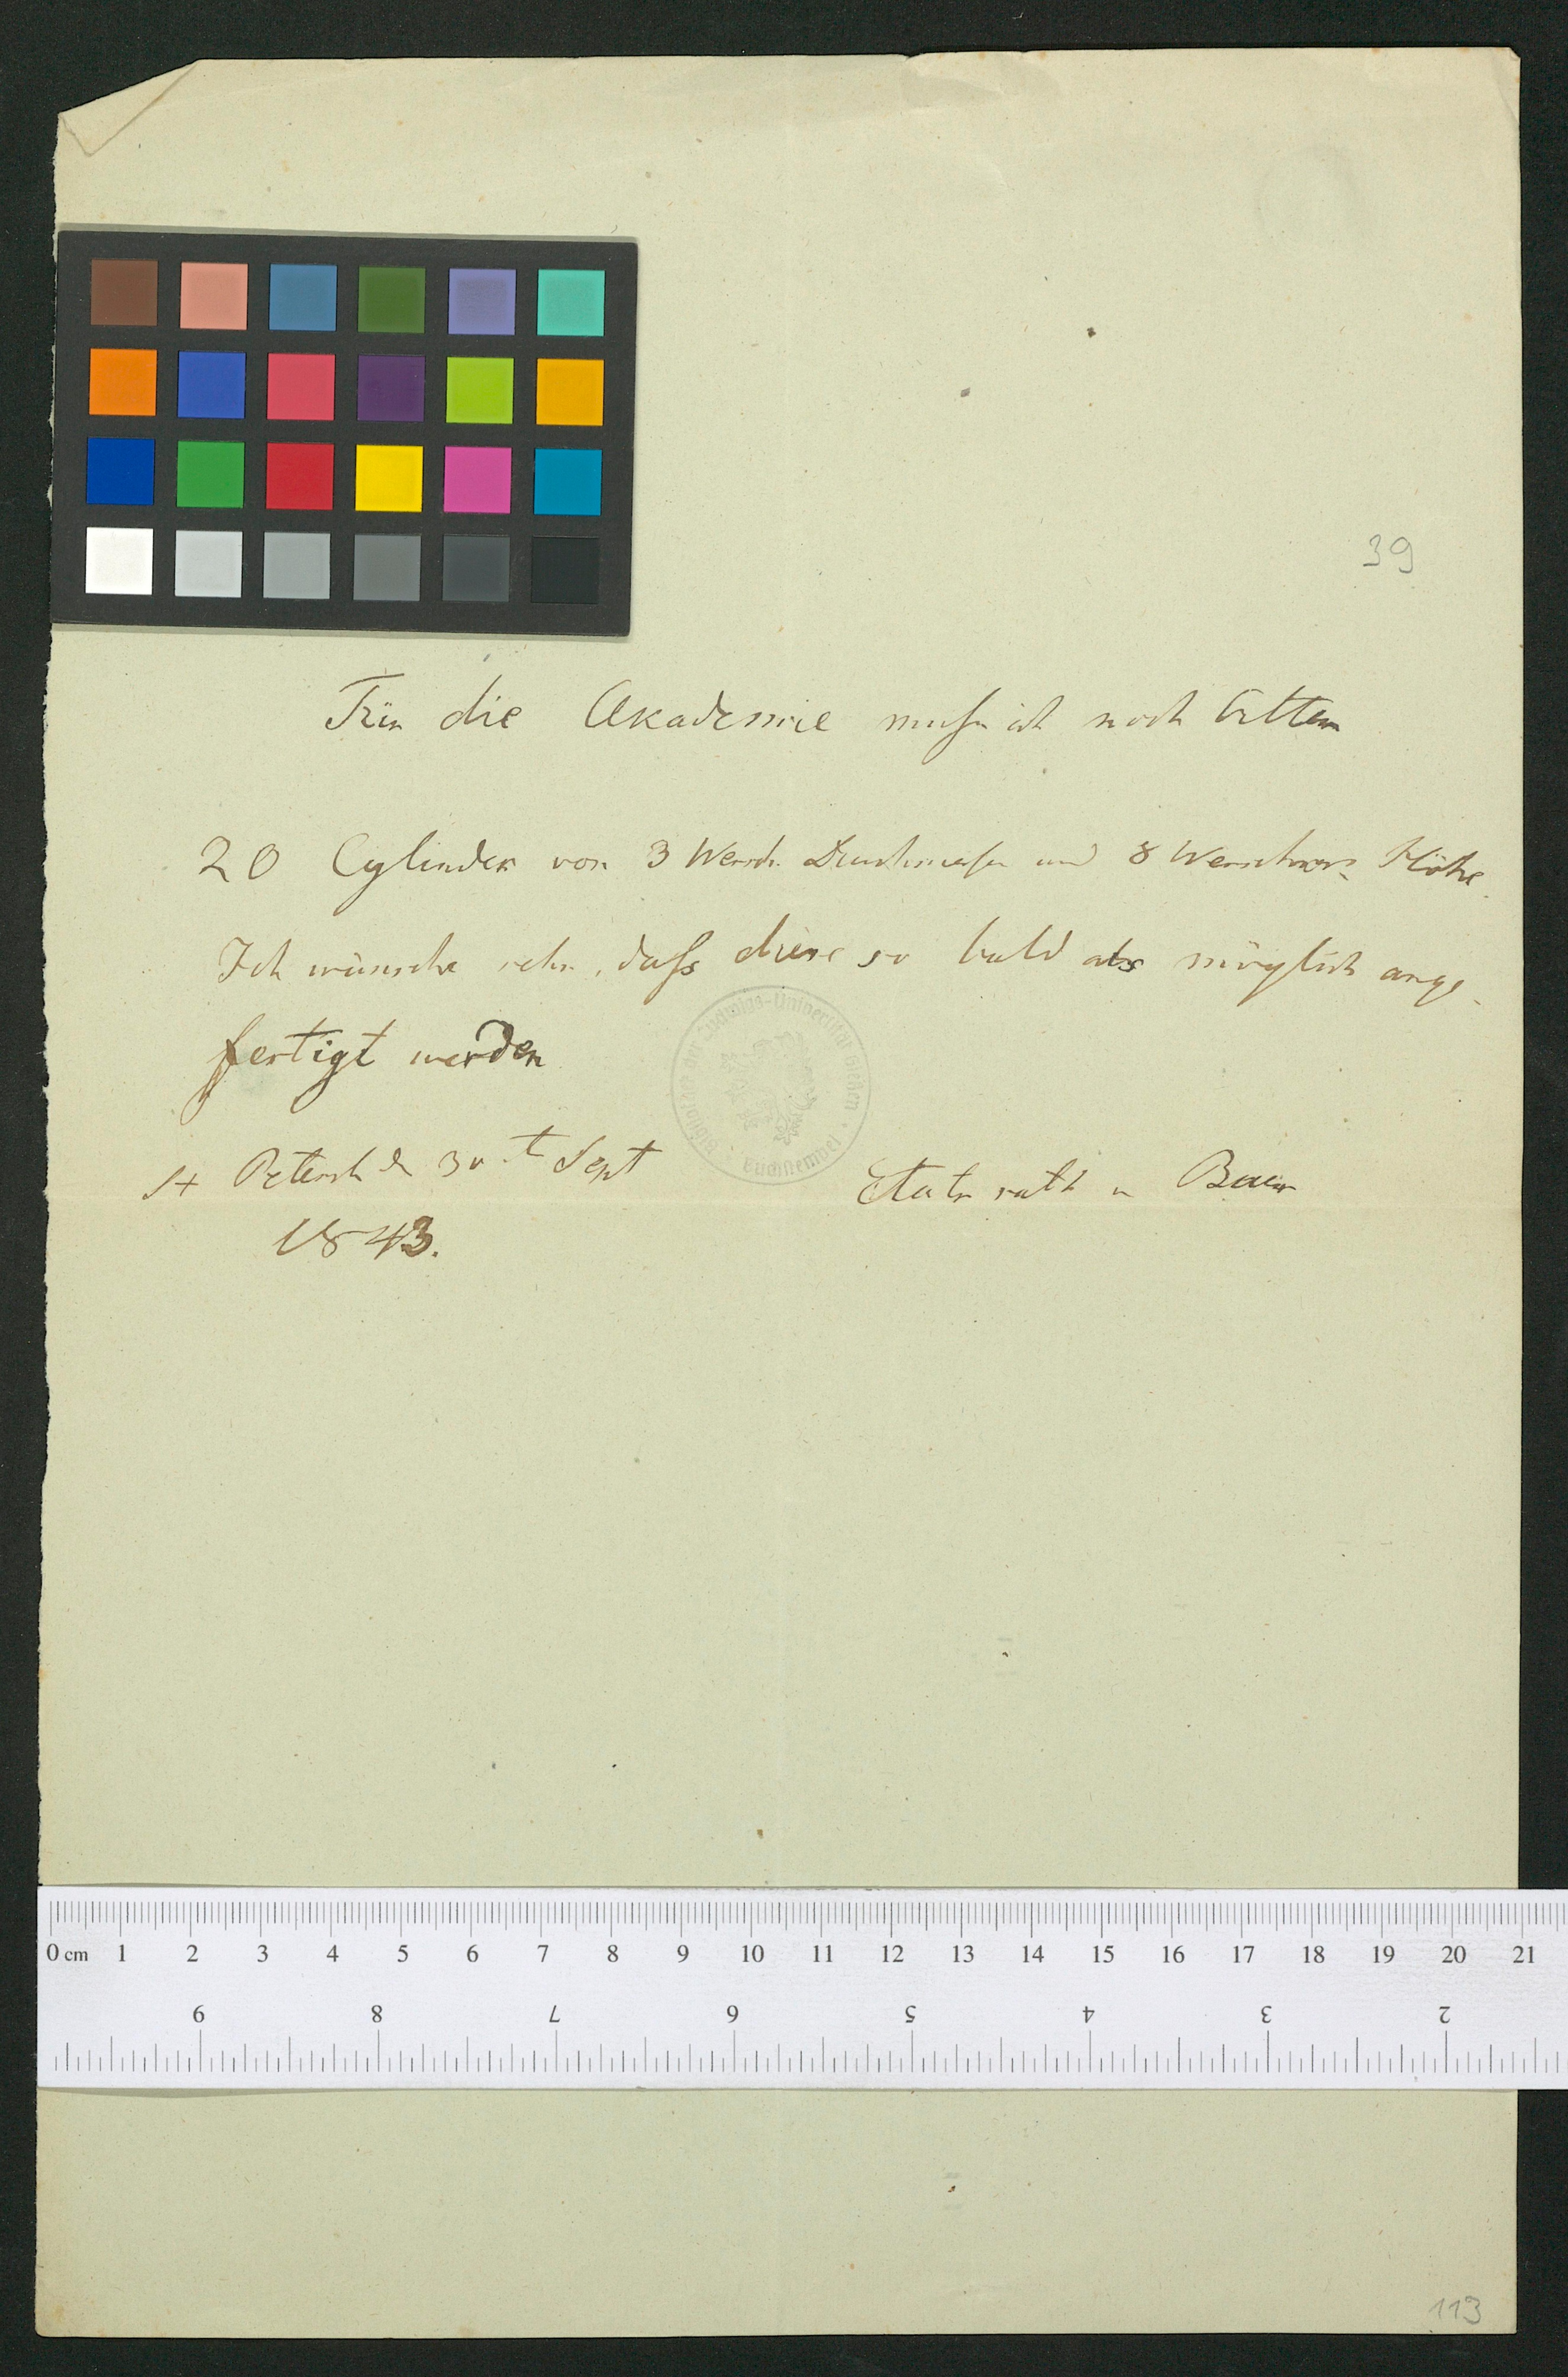 39
Für die Akademie muß ich noch bitten
20 Cylinder von 3 Wersch. Durchmesser und 8 Werschock Höhe.
Ich wünsche sehr, daſs diese so bald als möglich ange-
fertigt werden
St Petersb d 30t Sept
Etatsrath v Baer
1843.
Bibliothek der Ludwigs-Universität Gießen · Buchstempel ·
0 cm 1 2 3 4 5 6 7 8 9 10 11 12 13 14 15 16 17 18 19 20 21
9 8 7 6 5 4 3 2
113